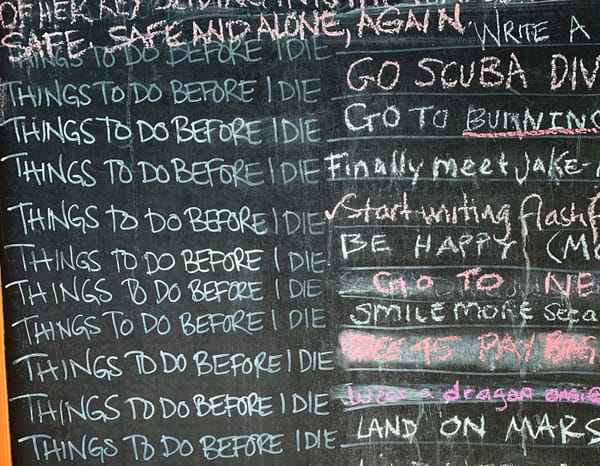 OF HER KEY
SAFE. SAFE AND ALONE, AGAIN.
THINGS TO DO BEFORE I DIE WRITE A
THINGS TO DO BEFORE I DIE GO SCUBA DIV
THINGS TO DO BEFORE I DIE GO TO BURNING
THINGS TO DO BEFORE I DIE Finally meet Jake-
THINGS TO DO BEFORE I DIE Start writing flash f
THINGS TO DO BEFORE I DIE BE HAPPY (MO
THINGS TO DO BEFORE I DIE GO TO NE
THINGS TO DO BEFORE I DIE SMILE MORE
THINGS TO DO BEFORE I DIE 45 PAY
THINGS TO DO BEFORE I DIE Wear a dragon onesie
THINGS TO DO BEFORE I DIE LAND ON MARS